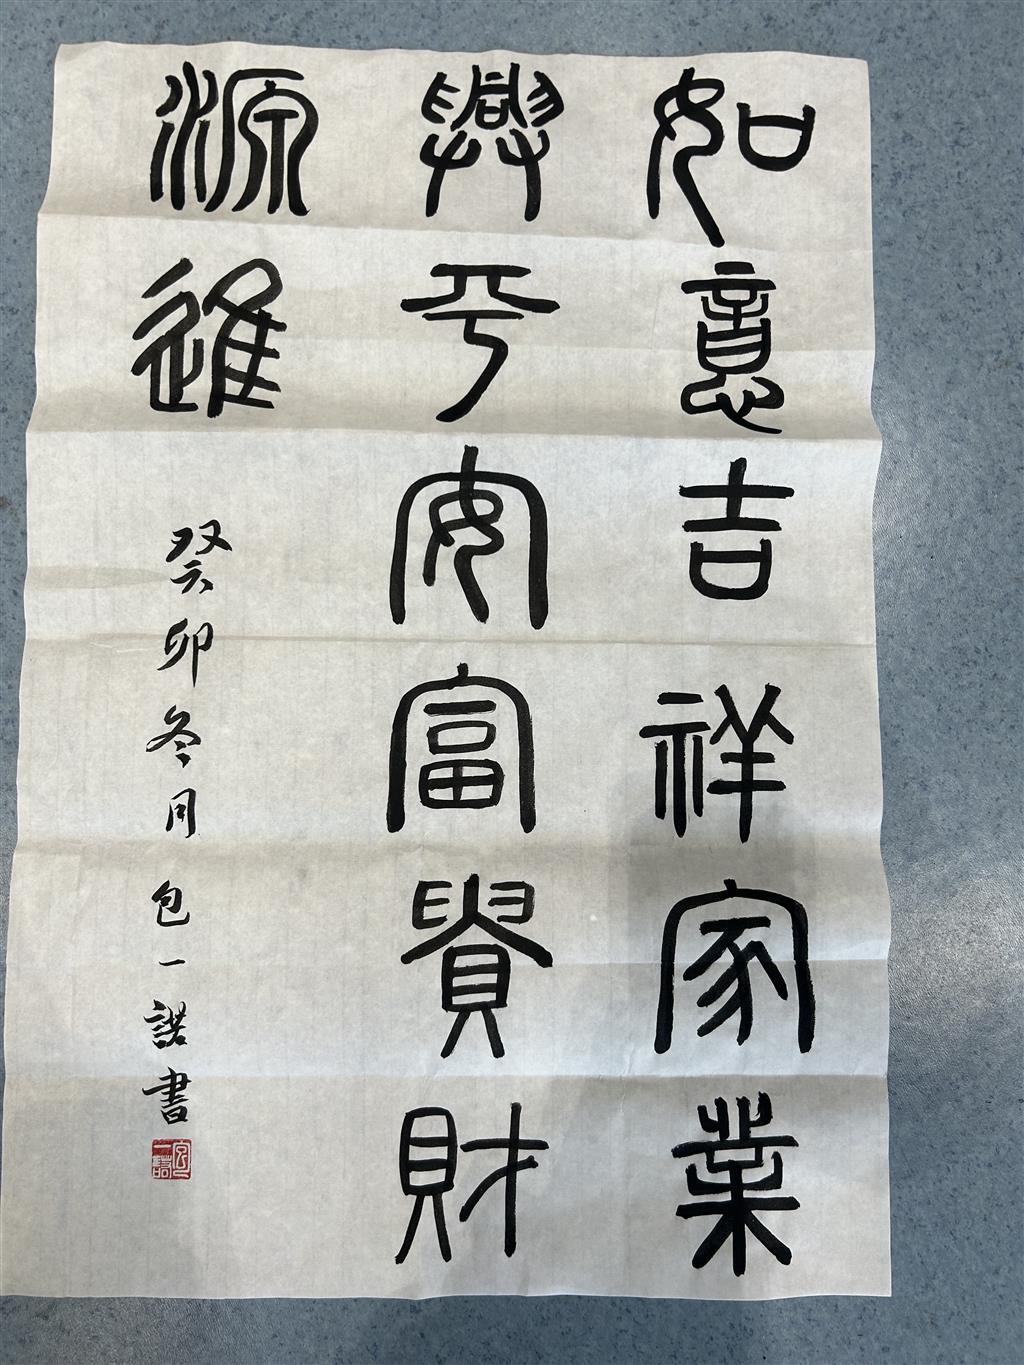 如意吉祥家業
興平安富貴財
源進
癸卯冬月包一諾書
包一諾